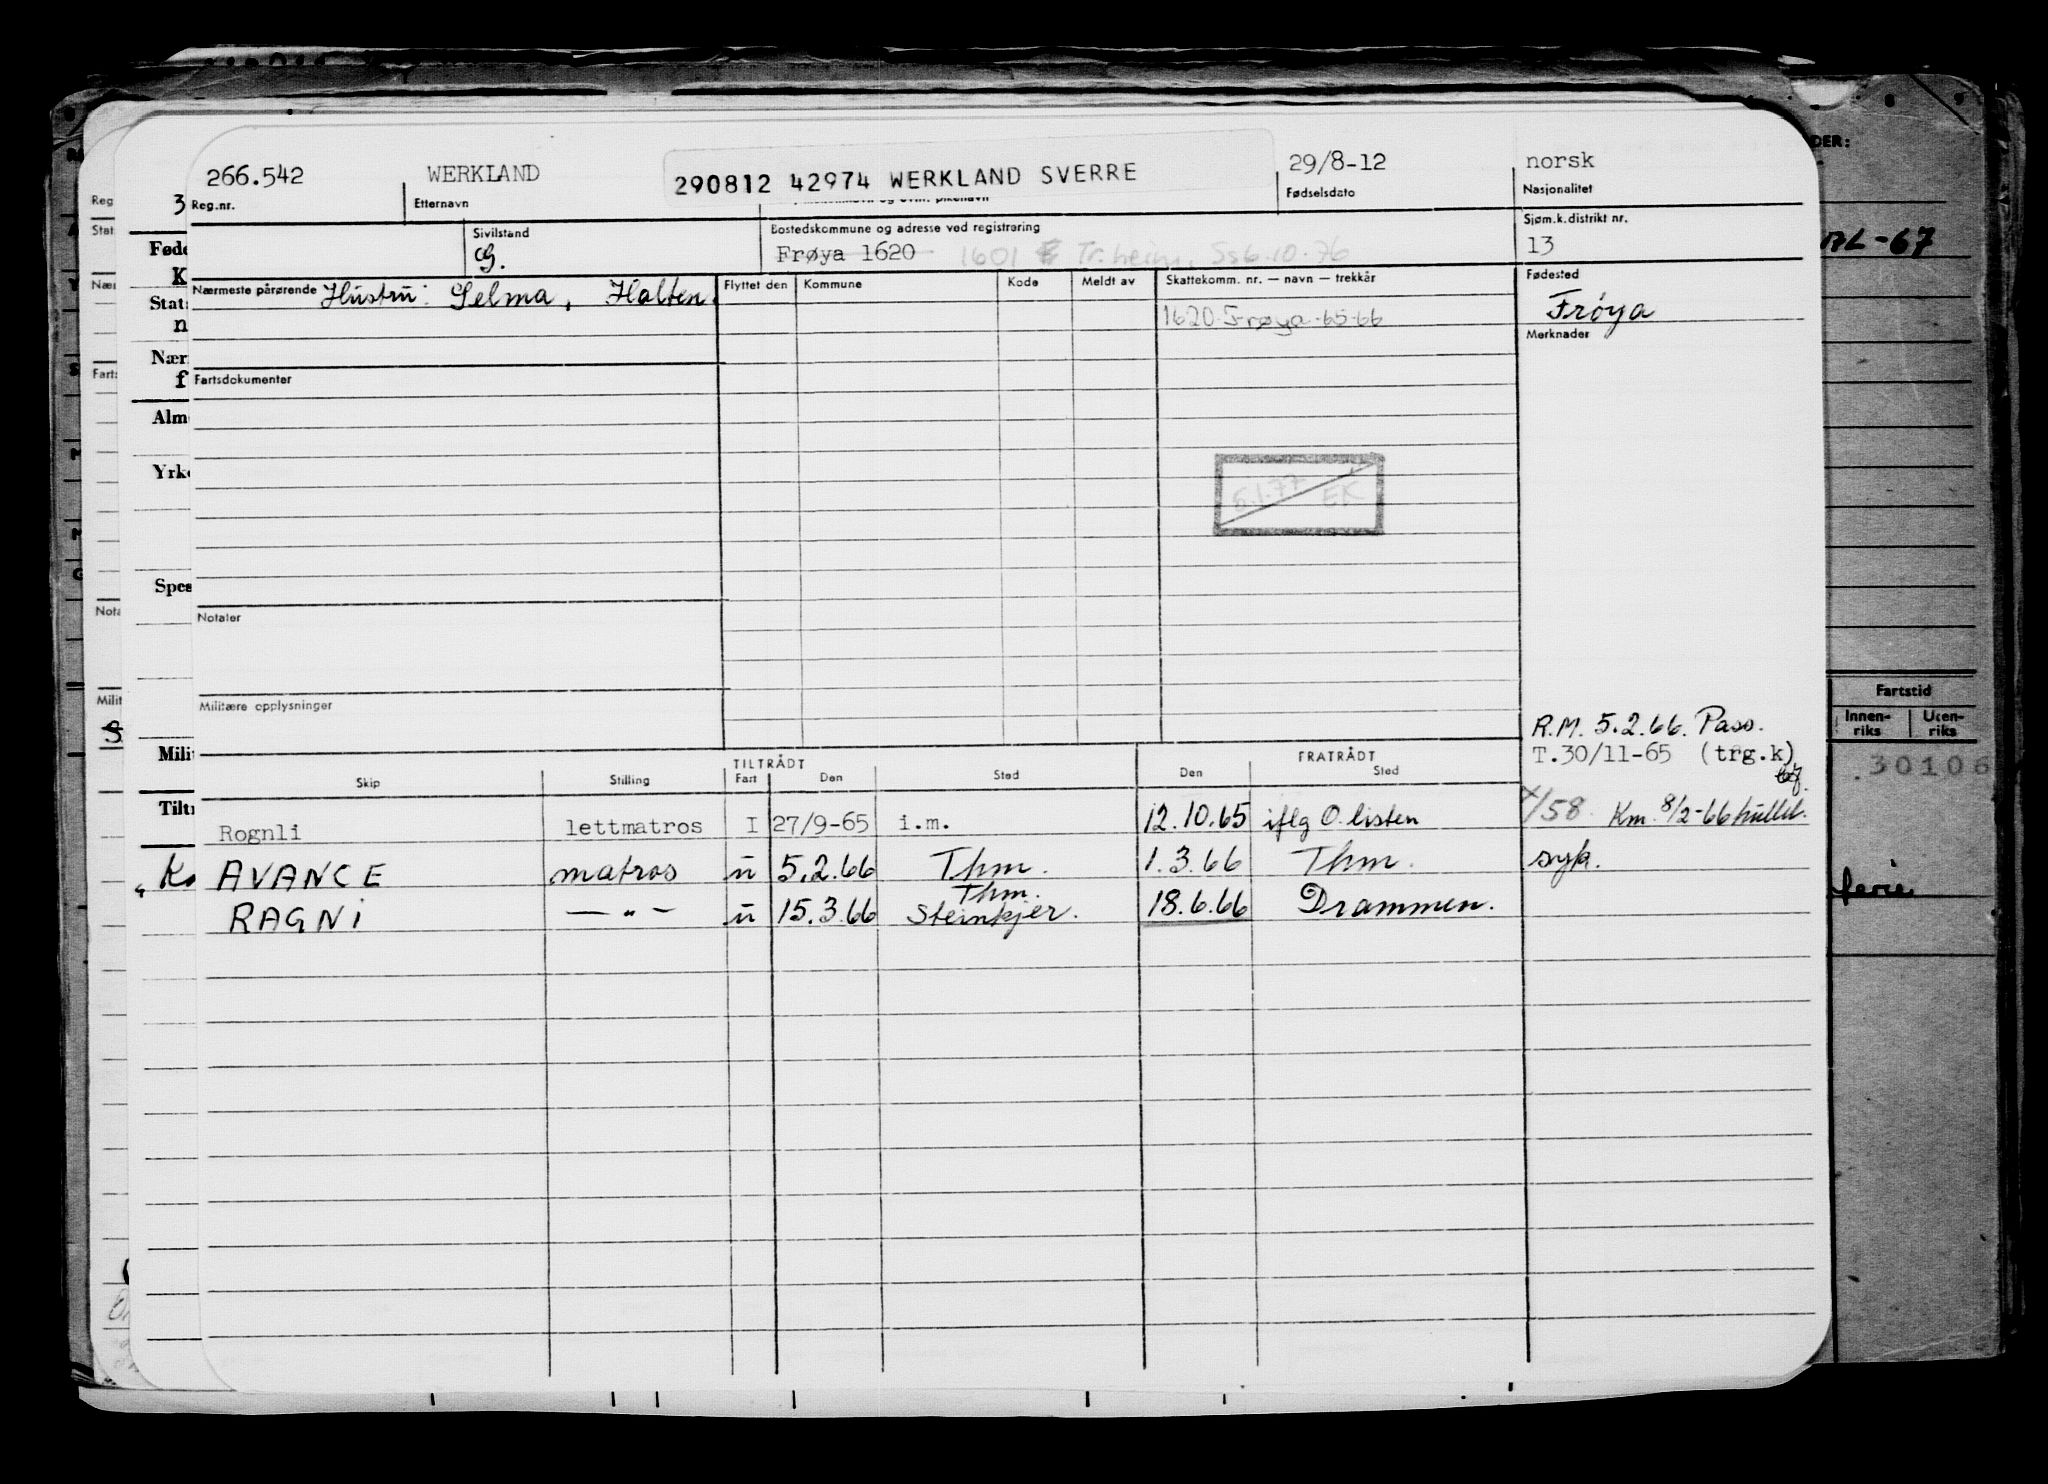 266.542 WERKLAND 290812 42974 WERKLAND SVERRE 29/8-12 norsk
Reg.nr. Etternavn Fødselsdato Nasjonalitet
Sivilstand Bostedskommune og adresse ved registrering Sjøm.k.distrikt nr.
G. Frøya 1620 1601 Tr.heim, Ss 6.10.76 13
Nærmeste pårørende Hustru: Selma, Halten. Flyttet den Kommune Kode Meldt av Skattekomm. nr. — navn — trekkår Fødested
1620 Frøya-65-66 Frøya
Merknader
Fartsdokumenter
6.1.77 EK
Notater
Militære opplysninger
R.M. 5.2.66. Pass.
T.30/11-65 (trg.k)
TILTRÅDT FRATRÅDT
Skip Stilling Fart Den Sted Den Sted
Rognli lettmatros I 27/9-65 i.m. 12.10.65 iflg O.listen /58 Km. 8/2-66
AVANCE matros u 5.2.66 Thm. 1.3.66 Thm. syk.
Thm.
RAGNI — " — u 15.3.66 Steinkjer. 18.6.66 Drammen.
DER:
-67
Fartstid
Innen-riks Uten-riks
30106
ferie
Reg
Stat
Nær
Farts
Nota
Milit
3
Føde
K
Stats
n
Nær
f
Alm
Yrke
Spes
Mili
Tilt